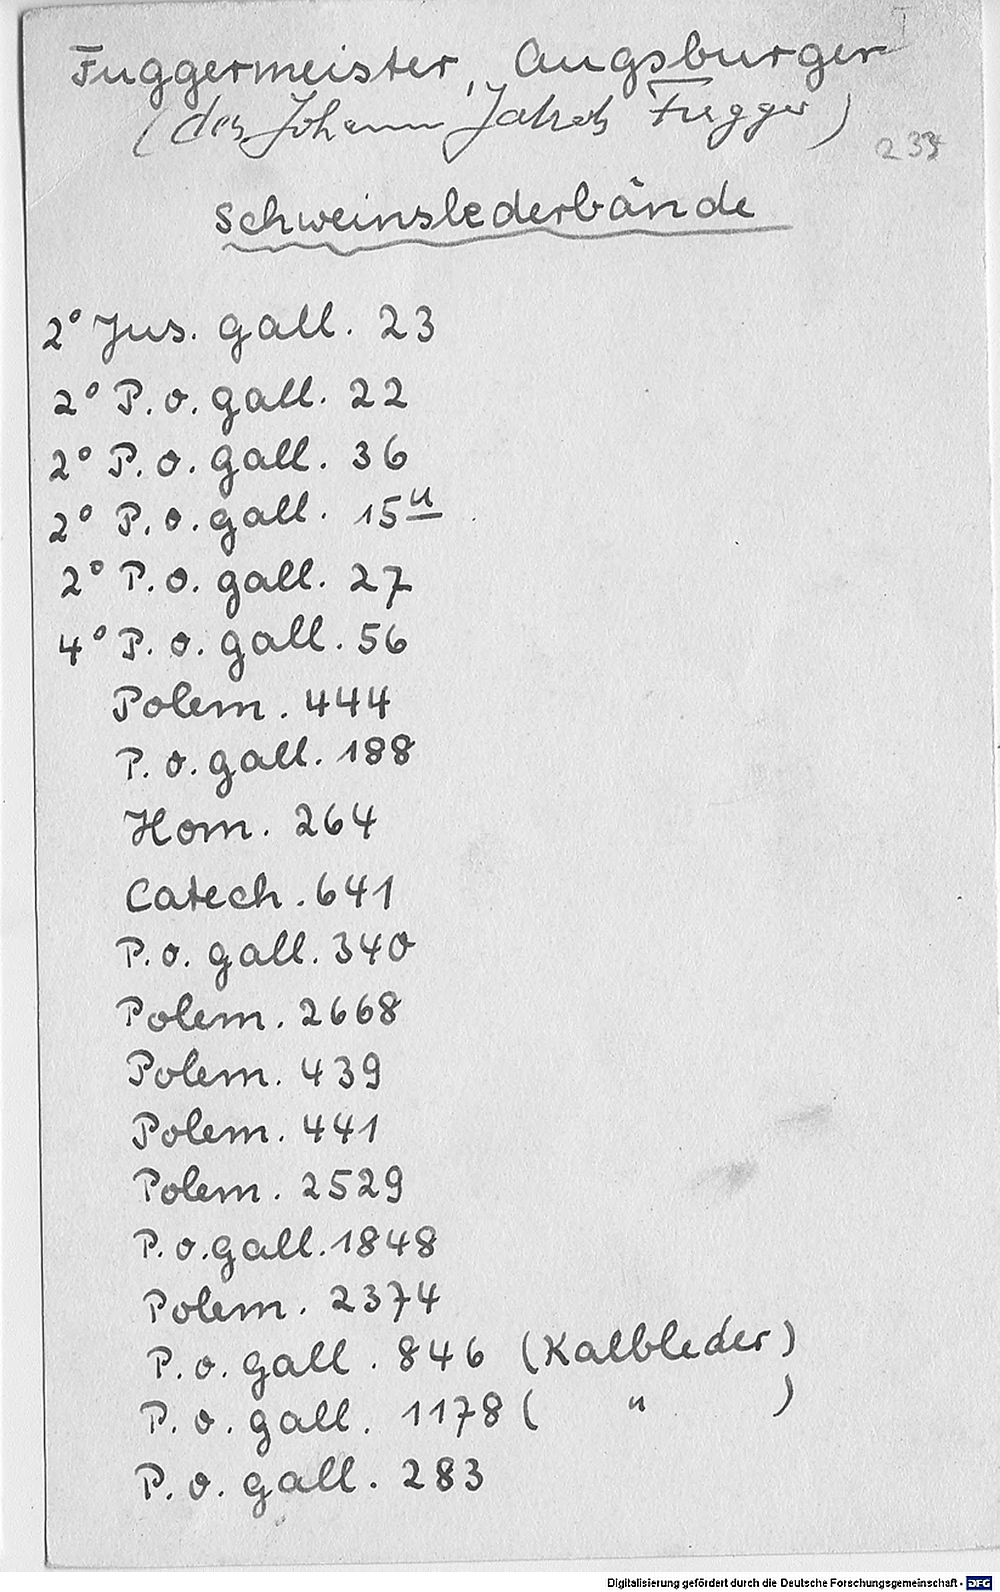 I
Fuggermeister, Augsburger
(des Johann Jakob Fugger)
233
Schweinslederbände
2° Jus. gall. 23
2° P. o. gall. 22
2° P. o. gall. 36
2° P. o. gall. 15ᵘ
2° P. o. gall. 27
4° P. o. gall. 56
Polem. 444
P. o. gall. 188
Hom. 264
Catech. 641
P. o. gall. 340
Polem. 2668
Polem. 439
Polem. 441
Polem. 2529
P. o. gall. 1848
Polem. 2374
P. o. gall. 846 (Kalbleder)
P. o. gall. 1178 ( " )
P. o. gall. 283
Digitalisierung gefördert durch die Deutsche Forschungsgemeinschaft - DFG